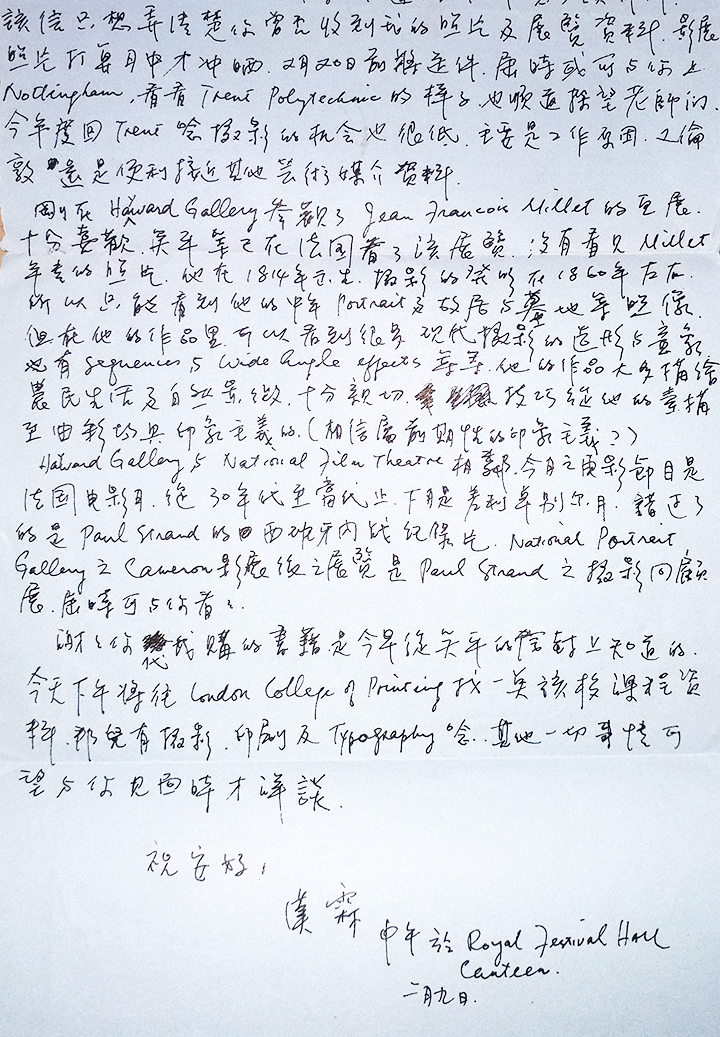 該信只想弄清楚你曾否收到我的照片及展覽資料. 影展
照片打算月中才沖晒. 2月20日前將送件. 屆時或可与你上
Nottingham, 看看 Trent Polytechnic 的樣子, 也順道探望老師们.
今年度回 Trent 唸攝影的机会也很低. 主要是工作原因. 又倫
敦還是便利接近其他芸術媒介資料.
剛在 Hayward Gallery 参觀了 Jean Francois Millet 的画展.
十分喜歡. 英年筆已在法国看了該展覽. 沒有看見 Millet
年青的照片. 他在1814年出生. 攝影的發明在1860年左右.
所以只能看到他的中年 Portrait 及故居与墓地等照像.
但在他的作品里可以看到很多現代攝影的造形与意象
也有 sequences 与 Wide Angle effects 等等. 他的作品大多描繪
農民生活及自然景緻. 十分親切. 技巧從他的素描
至油彩均與印象主義的. (相信屬前期性的印象主義?)
Hayward Gallery 与 National Film Theatre 相鄰. 今月之電影節目是
法国电影月. 從30年代至當代止. 下月是差利卓別尔月. 錯过了
的是 Paul Strand 的西班牙內战纪录片. National Portrait
Gallery 之 Cameron 影展後之展覽是 Paul Strand 之攝影回顧
展. 屆時可与你看看.
謝謝你代我購的書籍是今早從英年的信封上知道的.
今天下午將往 London College of Printing 找一英該校課程資
料. 那兒有攝影. 印刷及 Typography 唸. 其他一切事情可
望与你見面時才詳談.
祝安好!
漢霖
中午於 Royal Festival Hall
Canteen.
二月九日.